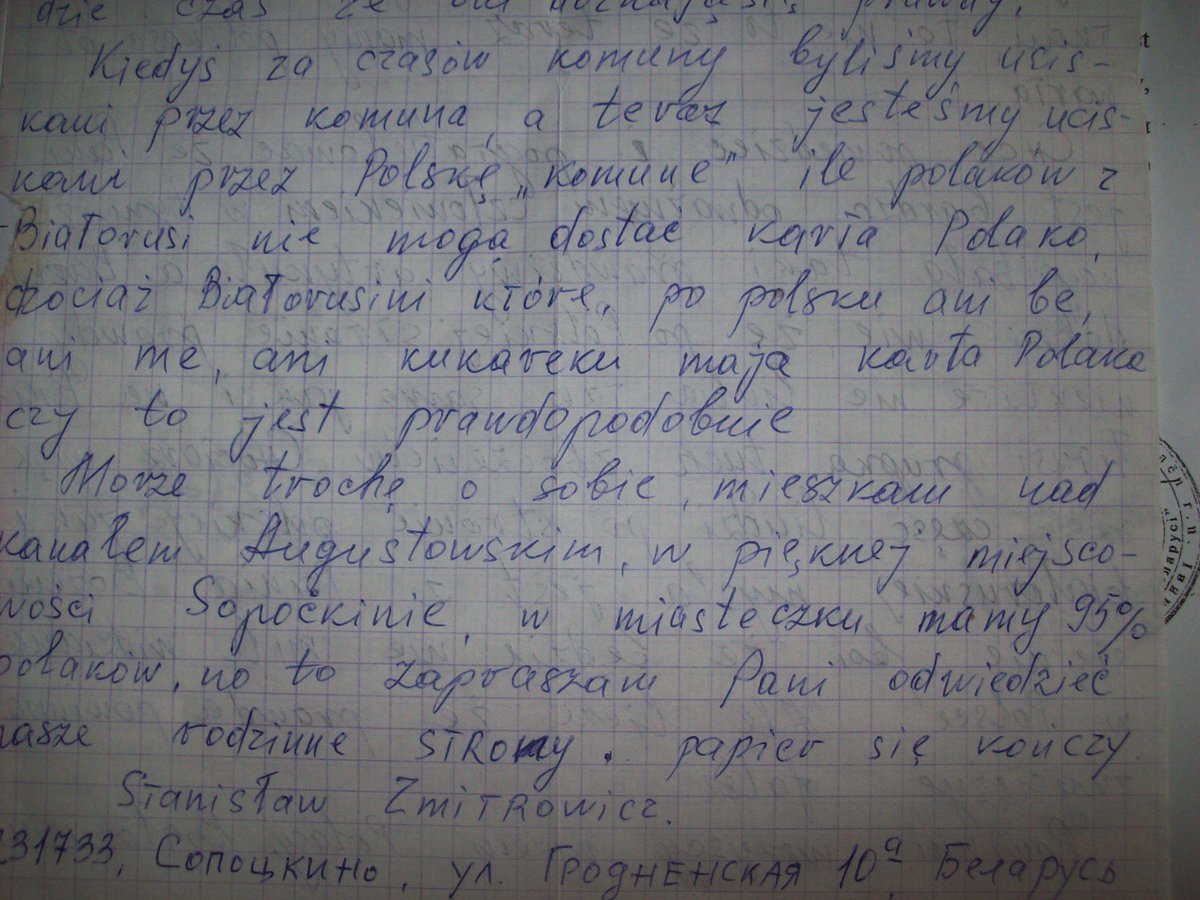 dzie czas że oni doznają się prawdy.
Kiedyś za czasów komuny byliśmy ucis-
kami przez komuna, a teraz jesteśmy ucis-
kami przez Polskę „komune" ile polaków z
Białorusi nie mogą dostać karta Polako,
chociaż Białorusini które, po polsku ani be,
ani me, ani kukareku mają karta Polaka
czy to jest prawdopodobnie
Morze trochę o sobie, mieszkam nad
kanałem Augustowskim, w pięknej miejsco-
wości Sopoćkinie, w miasteczku mamy 95%
polaków, no to zapraszam Pani odwiedzieć
nasze rodzinne STRONY. papier się kończy
Stanisław Zmitrowicz.
231733, Сопоцкино, ул. Гродненская 10ᵃ Беларусь